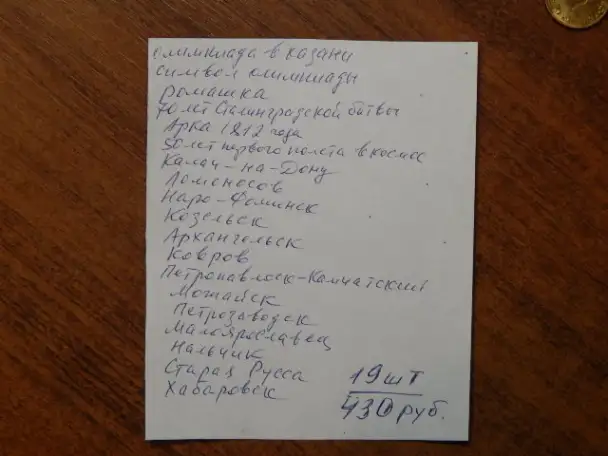 олимпиада в казани
символ олимпиады
ромашка
70 лет Сталинградской битвы
Арка 1812 года
50 лет первого полета в космос
Калач-на-Дону
Ломоносов
Наро-Фоминск
Козельск
Архангельск
Ковров
Петропавлоск-Камчатский
Можайск
Петрозаводск
Малоярославец
Нальчик
Старая Русса
Хабаровск
19 шт
430 руб.